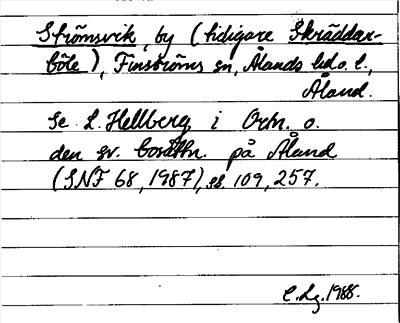 Strömsvik, by (tidigare Skräddar-
böle), Finströms sn, Ålands hd o. l.,
Åland.
Se L. Hellberg i Ortn. o.
den sv. bosättn. på Åland
(SNF 68, 1987), ss. 109, 257.
C. Lg. 1988.